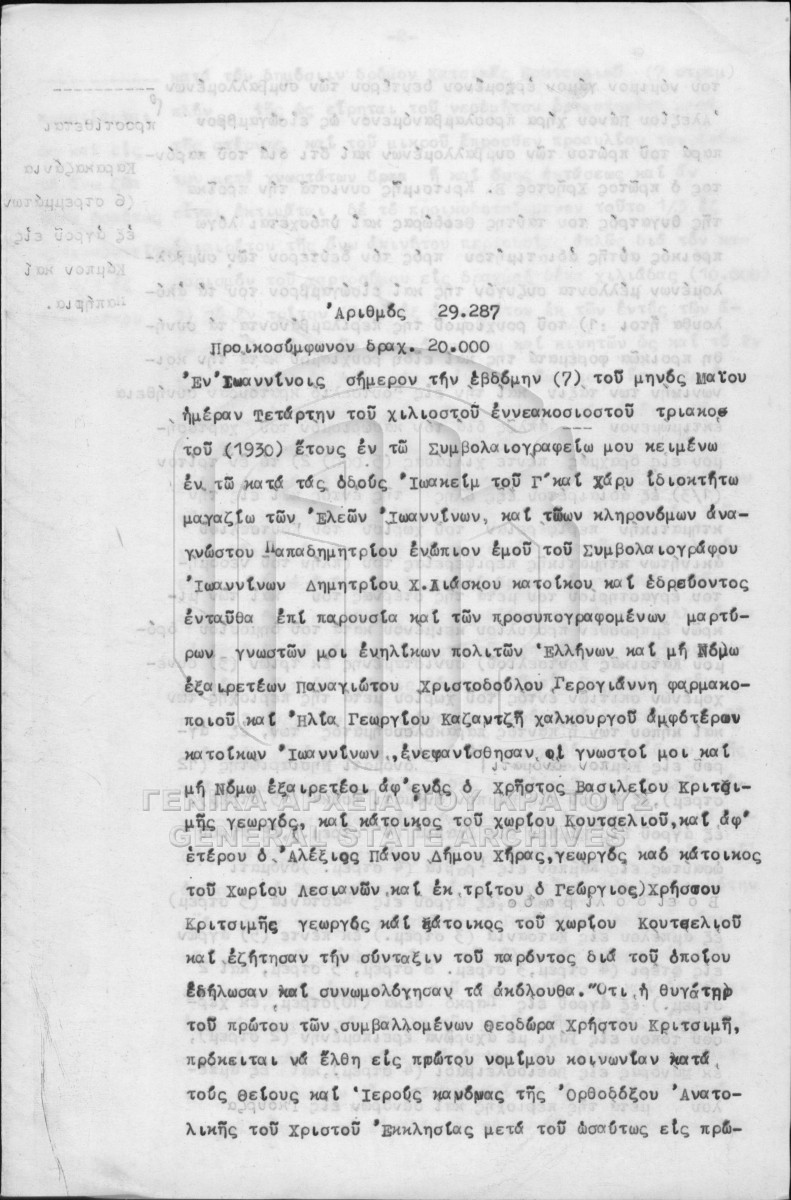 Ἀριθμός 29.287
Προικοσύμφωνον δραχ. 20.000
Ἐν Ἰωαννίνοις σήμερον τήν ἑβδόμην (7) τοῦ μηνός Μαΐου
ἡμέραν Τετάρτην τοῦ χιλιοστοῦ ἐννεακοσιοστοῦ τριακο-
τοῦ (1930) ἔτους ἐν τῶ Συμβολαιογραφείω μου κειμένω
ἐν τῶ κατά τάς ὁδούς Ἰωακείμ τοῦ Γ' καί Χάρυ ἰδιοκτήτω
μαγαζίω τῶν Ἐλεῶν Ἰωαννίνων, καί τῶων κληρονόμων ἀνα-
γνώστου Παπαδημητρίου ἐνώπιον ἐμοῦ τοῦ Συμβολαιογράφου
Ἰωαννίνων Δημητρίου Χ.Λιάσκου κατοίκου καί ἑδρεύοντος
ἐνταῦθα ἐπί παρουσία καί τῶν προσυπογραφομένων μαρτύ-
ρων γνωστῶν μοι ἐνηλίκων πολιτῶν Ἑλλήνων καί μή Νόμω
ἐξαιρετέων Παναγιώτου Χριστοδούλου Γερογιάννη φαρμακο-
ποιοῦ καί Ἠλία Γεωργίου Καζαντζῆ χαλκουργοῦ ἀμφοτέρων
κατοίκων Ἰωαννίνων, ἐνεφανίσθησαν οἱ γνωστοί μοι καί
μή Νόμω ἐξαιρετέοι ἀφ'ἑνός ὁ Χρῆστος Βασιλείου Κριτσι-
ΓΕΝΙΚΑ ΑΡΧΕΙΑ ΤΟΥ ΚΡΑΤΟΥΣ
μῆς γεωργός, καί κάτοικος τοῦ χωρίου Κουτσελιοῦ,καί ἀφ'
GENERAL STATE ARCHIVES
ἑτέρου ὁ Ἀλέξιος Πάνου Δήμου Χήρας,γεωργός καό κάτοικος
τοῦ Χωρίου Λεσιανῶν καί ἐκ τρίτου ὁ Γεώργιος)Χρήστου
Κριτσιμῆς γεωργός καί κάτοικος τοῦ χωρίου Κουτσελιοῦ
καί ἐζήτησαν τήν σύνταξιν τοῦ παρόντος διά τοῦ ὁποίου
ἐδήλωσαν καί συνωμολόγησαν τά ἀκόλουθα. Ὅτι ἡ θυγάτηρ
τοῦ πρώτου τῶν συμβαλλομένων Θεοδώρα Χρήστου Κριτσιμῆ,
πρόκειται νά ἔλθη εἰς πρώτου νομίμου κοινωνίαν κατά
τούς Θείους καί Ἱερούς κανόνας τῆς Ὀρθοδόξου Ἀνατο-
λικῆς τοῦ Χριστοῦ Ἐκκλησίας μετά τοῦ ὡσαύτως εἰς πρώ-